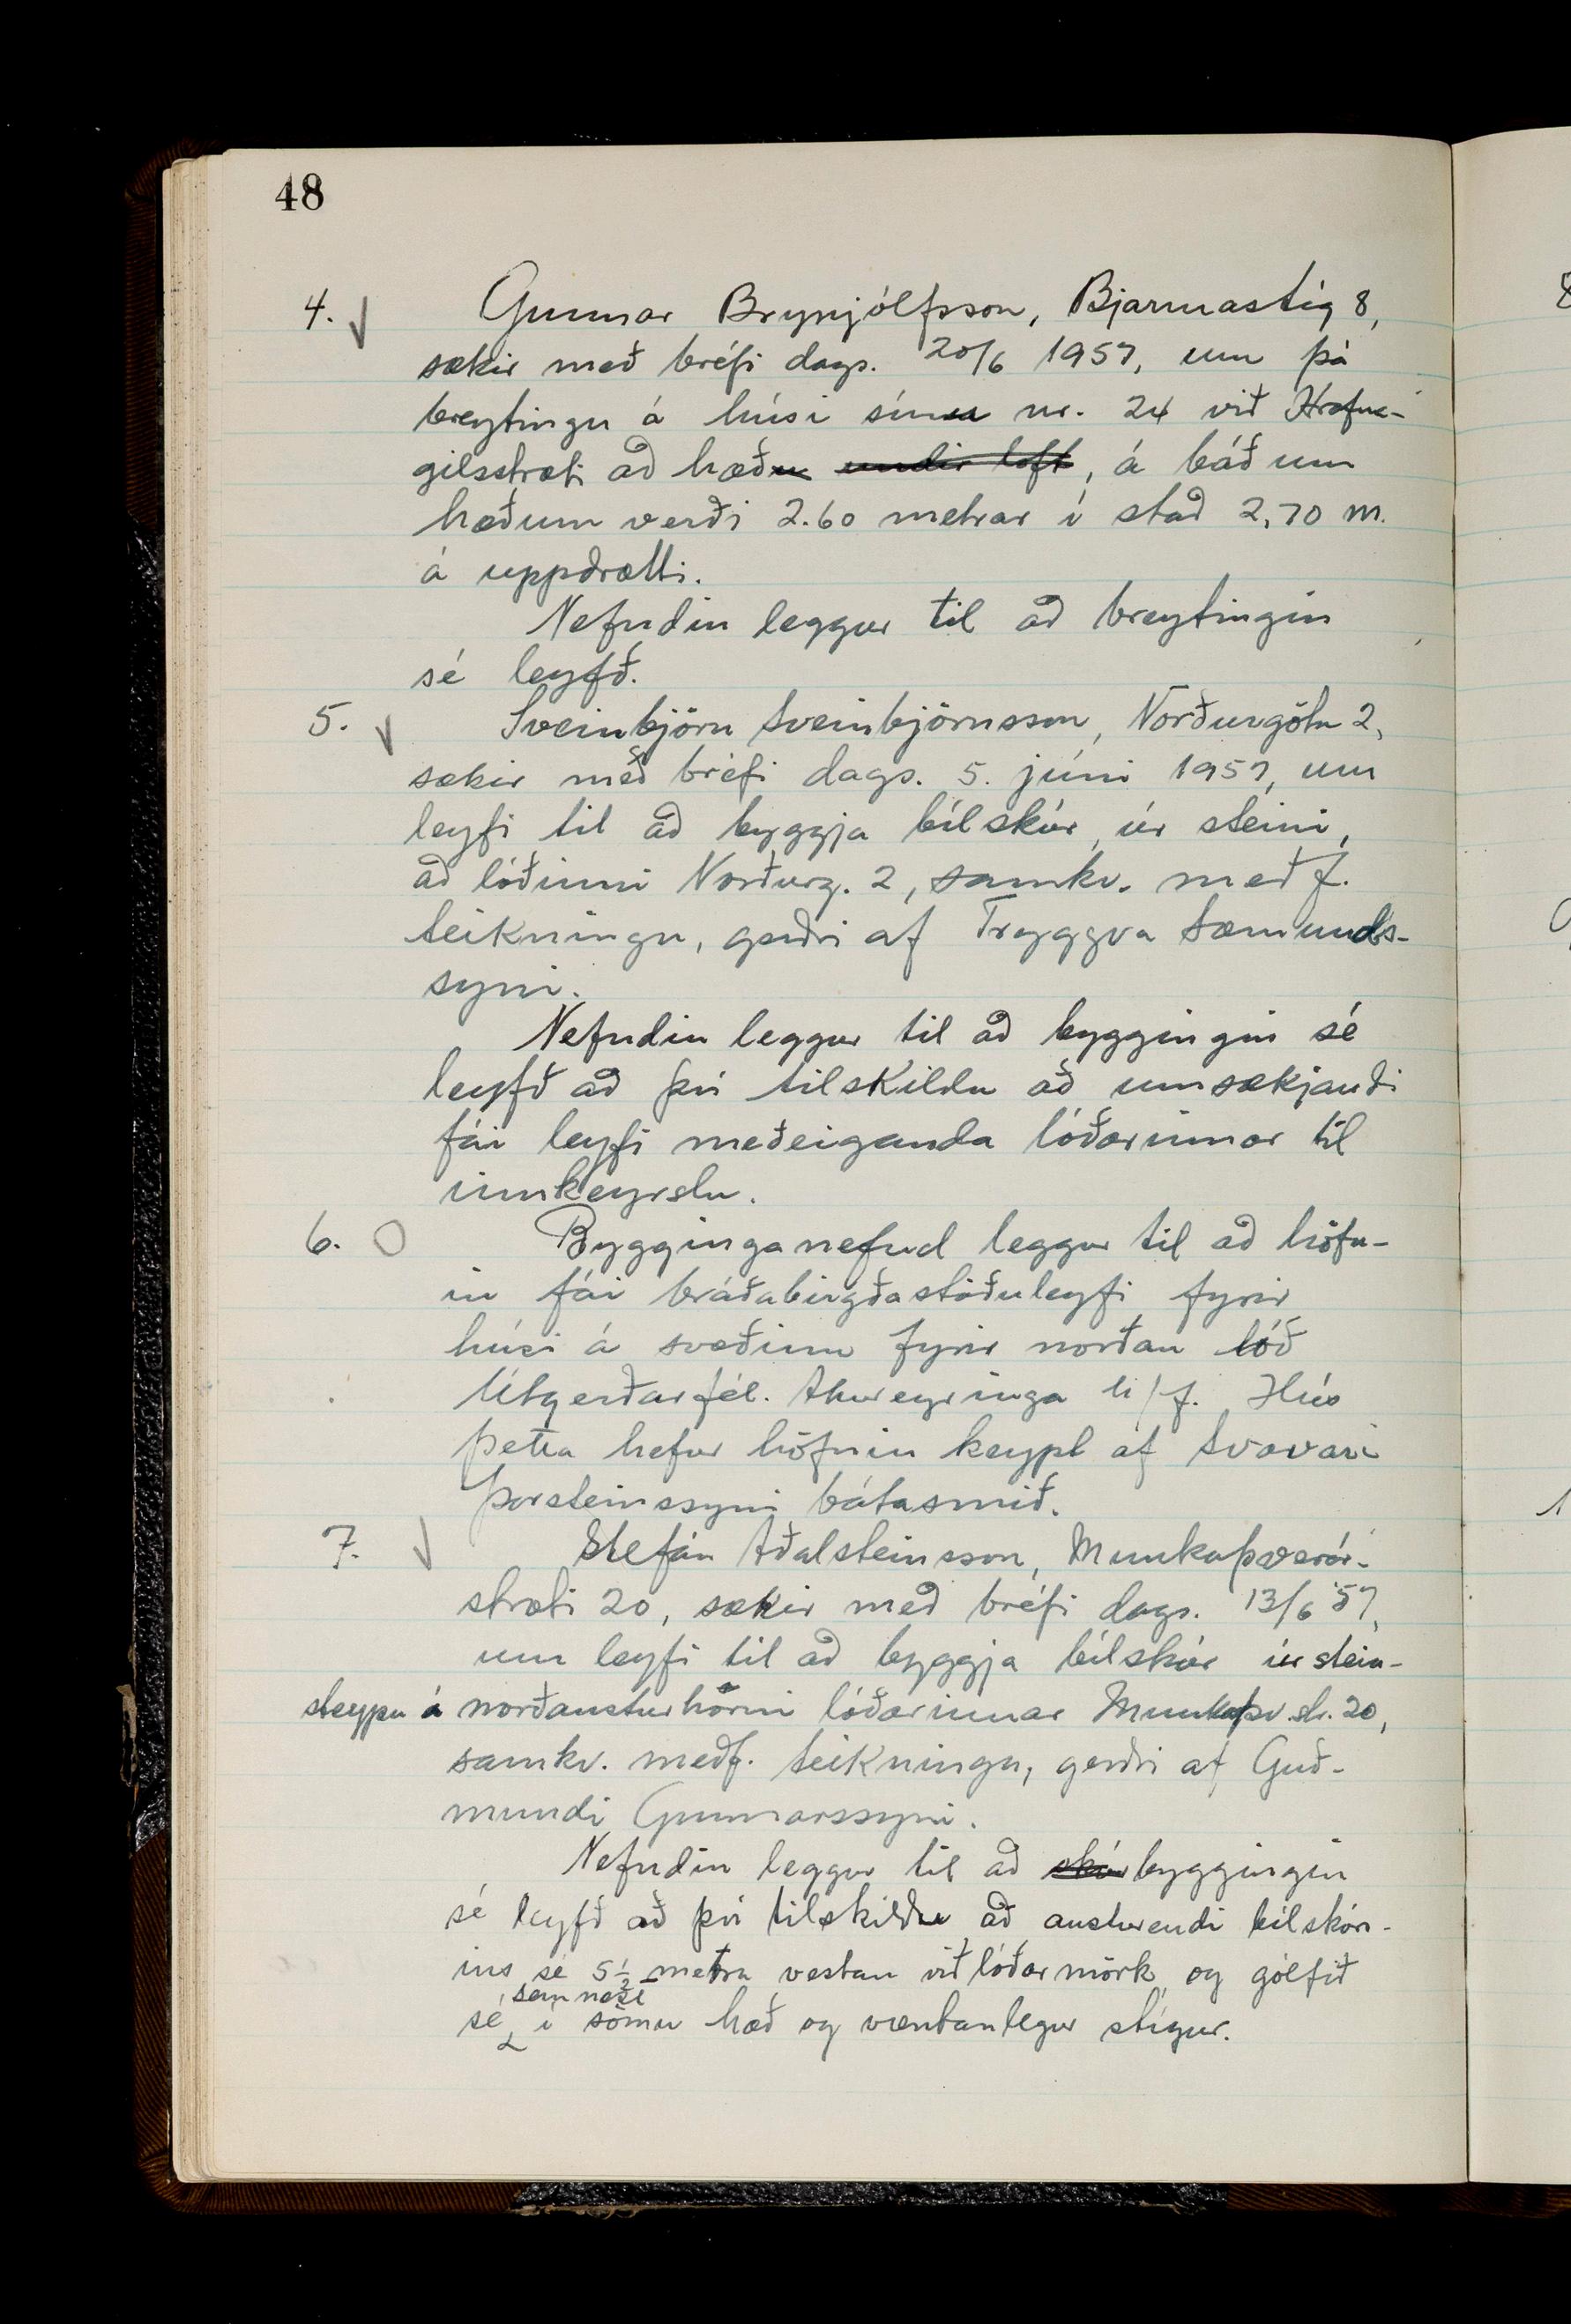 48
4. Gunnar Brynjólfsson, Bjarmastíg 8,
sækir með bréfi dags. 20/6 1957, um þá
breytingu á húsi sínu nr. 24 við Hrafna-
gilsstræti að hæð undir loft, á báðum
hæðum verði 2.60 metrar í stað 2,70 m.
á uppdrætti.
Nefndin leggur til að breytingin
sé leyfð.
5. Sveinbjörn Sveinbjörnsson, Norðurgötu 2,
sækir með bréfi dags. 5. júní 1957, um
leyfi til að byggja bílskúr, úr steini,
að lóðinni Norðurg. 2, samkv. meðf.
teikningu, gerðri af Tryggva Sæmunds-
syni.
Nefndin leggur til að byggingin sé
leyfð að því tilskildu að umsækjandi
fái leyfi meðeiganda lóðarinnar til
innkeyrslu.
6. Bygginganefnd leggur til að höfn-
in fái bráðabirgðastöðuleyfi fyrir
húsi á svæðinu fyrir norðan lóð
Útgerðarfél. Akureyringa h/f. Hús
þetta hefur höfnin keypt af Svavari
Þorsteinssyni bátasmið.
7. Stefán Aðalsteinsson, Munkaþverár-
stræti 20, sækir með bréfi dags. 13/6 '57,
um leyfi til að byggja bílskúr úr stein-
steypu á norðausturhorni lóðarinnar Munkaþv.str. 20,
samkv. meðf. teikningu, gerðri af Guð-
mundi Gunnarssyni.
Nefndin leggur til að skúr byggingin
sé leyfð að því tilskildu að austurendi bílskúrs-
ins sé 5 1/2 metra vestan við lóðarmörk og gólfið
sem næst
sé í sömu hæð og væntanlegur stígur.